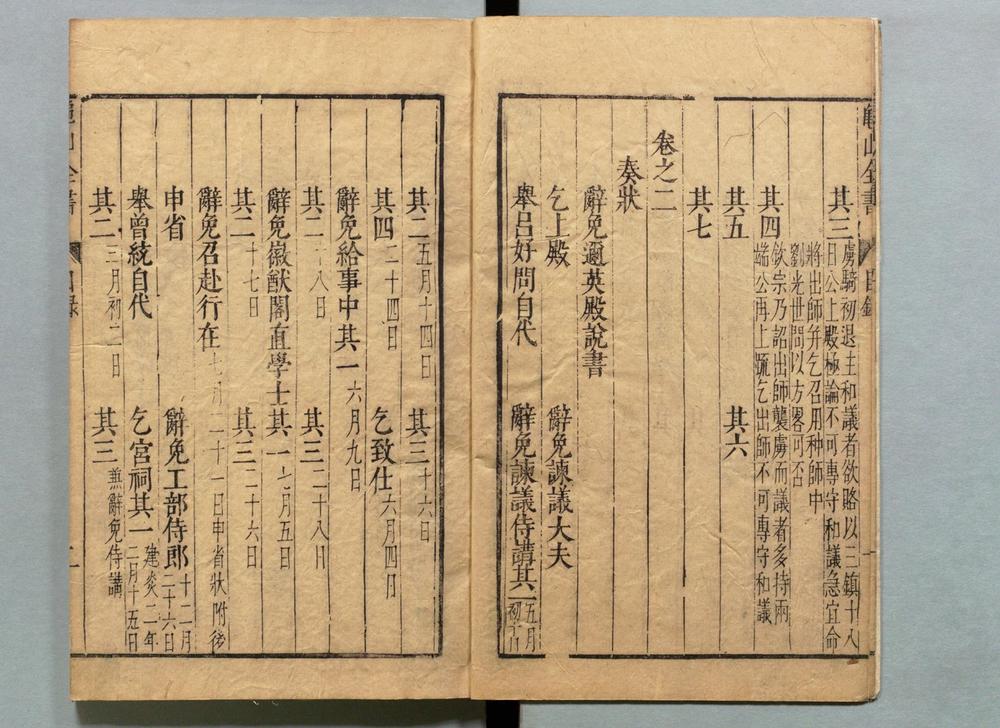 其三虜騎初退主和議者欲賂以三鎮十八
日公上殿極論不可專守和議急宜命
將出師弁乞召用种師中
劉光世問以方畧可否
其四欽宗乃詔出師襲虜而議者多持兩
端公再上疏乞出師不可專守和議
其五 其六
其七
卷之二
奏狀
辭免邇英殿說書
乞上殿 辭免諫議大夫
舉呂好問自代 辭免諫議侍講其一五月
初六日
其二五月十四日 其三十六日
其四二十四日 乞致仕六月四日
辭免給事中其一六月九日
其二十八日 其三二十八日
辭免徽猷閣直學士其一七月五日
其二十七日 其三二十六日
辭免召赴行在七月二十一日申省狀附後
申省 辭免工部侍郎十二月
二十六日
舉曾統自代 乞宮祠其一建炎二年
二月十五日
其二三月初二日 其三兼辭免侍講
龜山全書 目錄 一
龜山全書 目錄 二